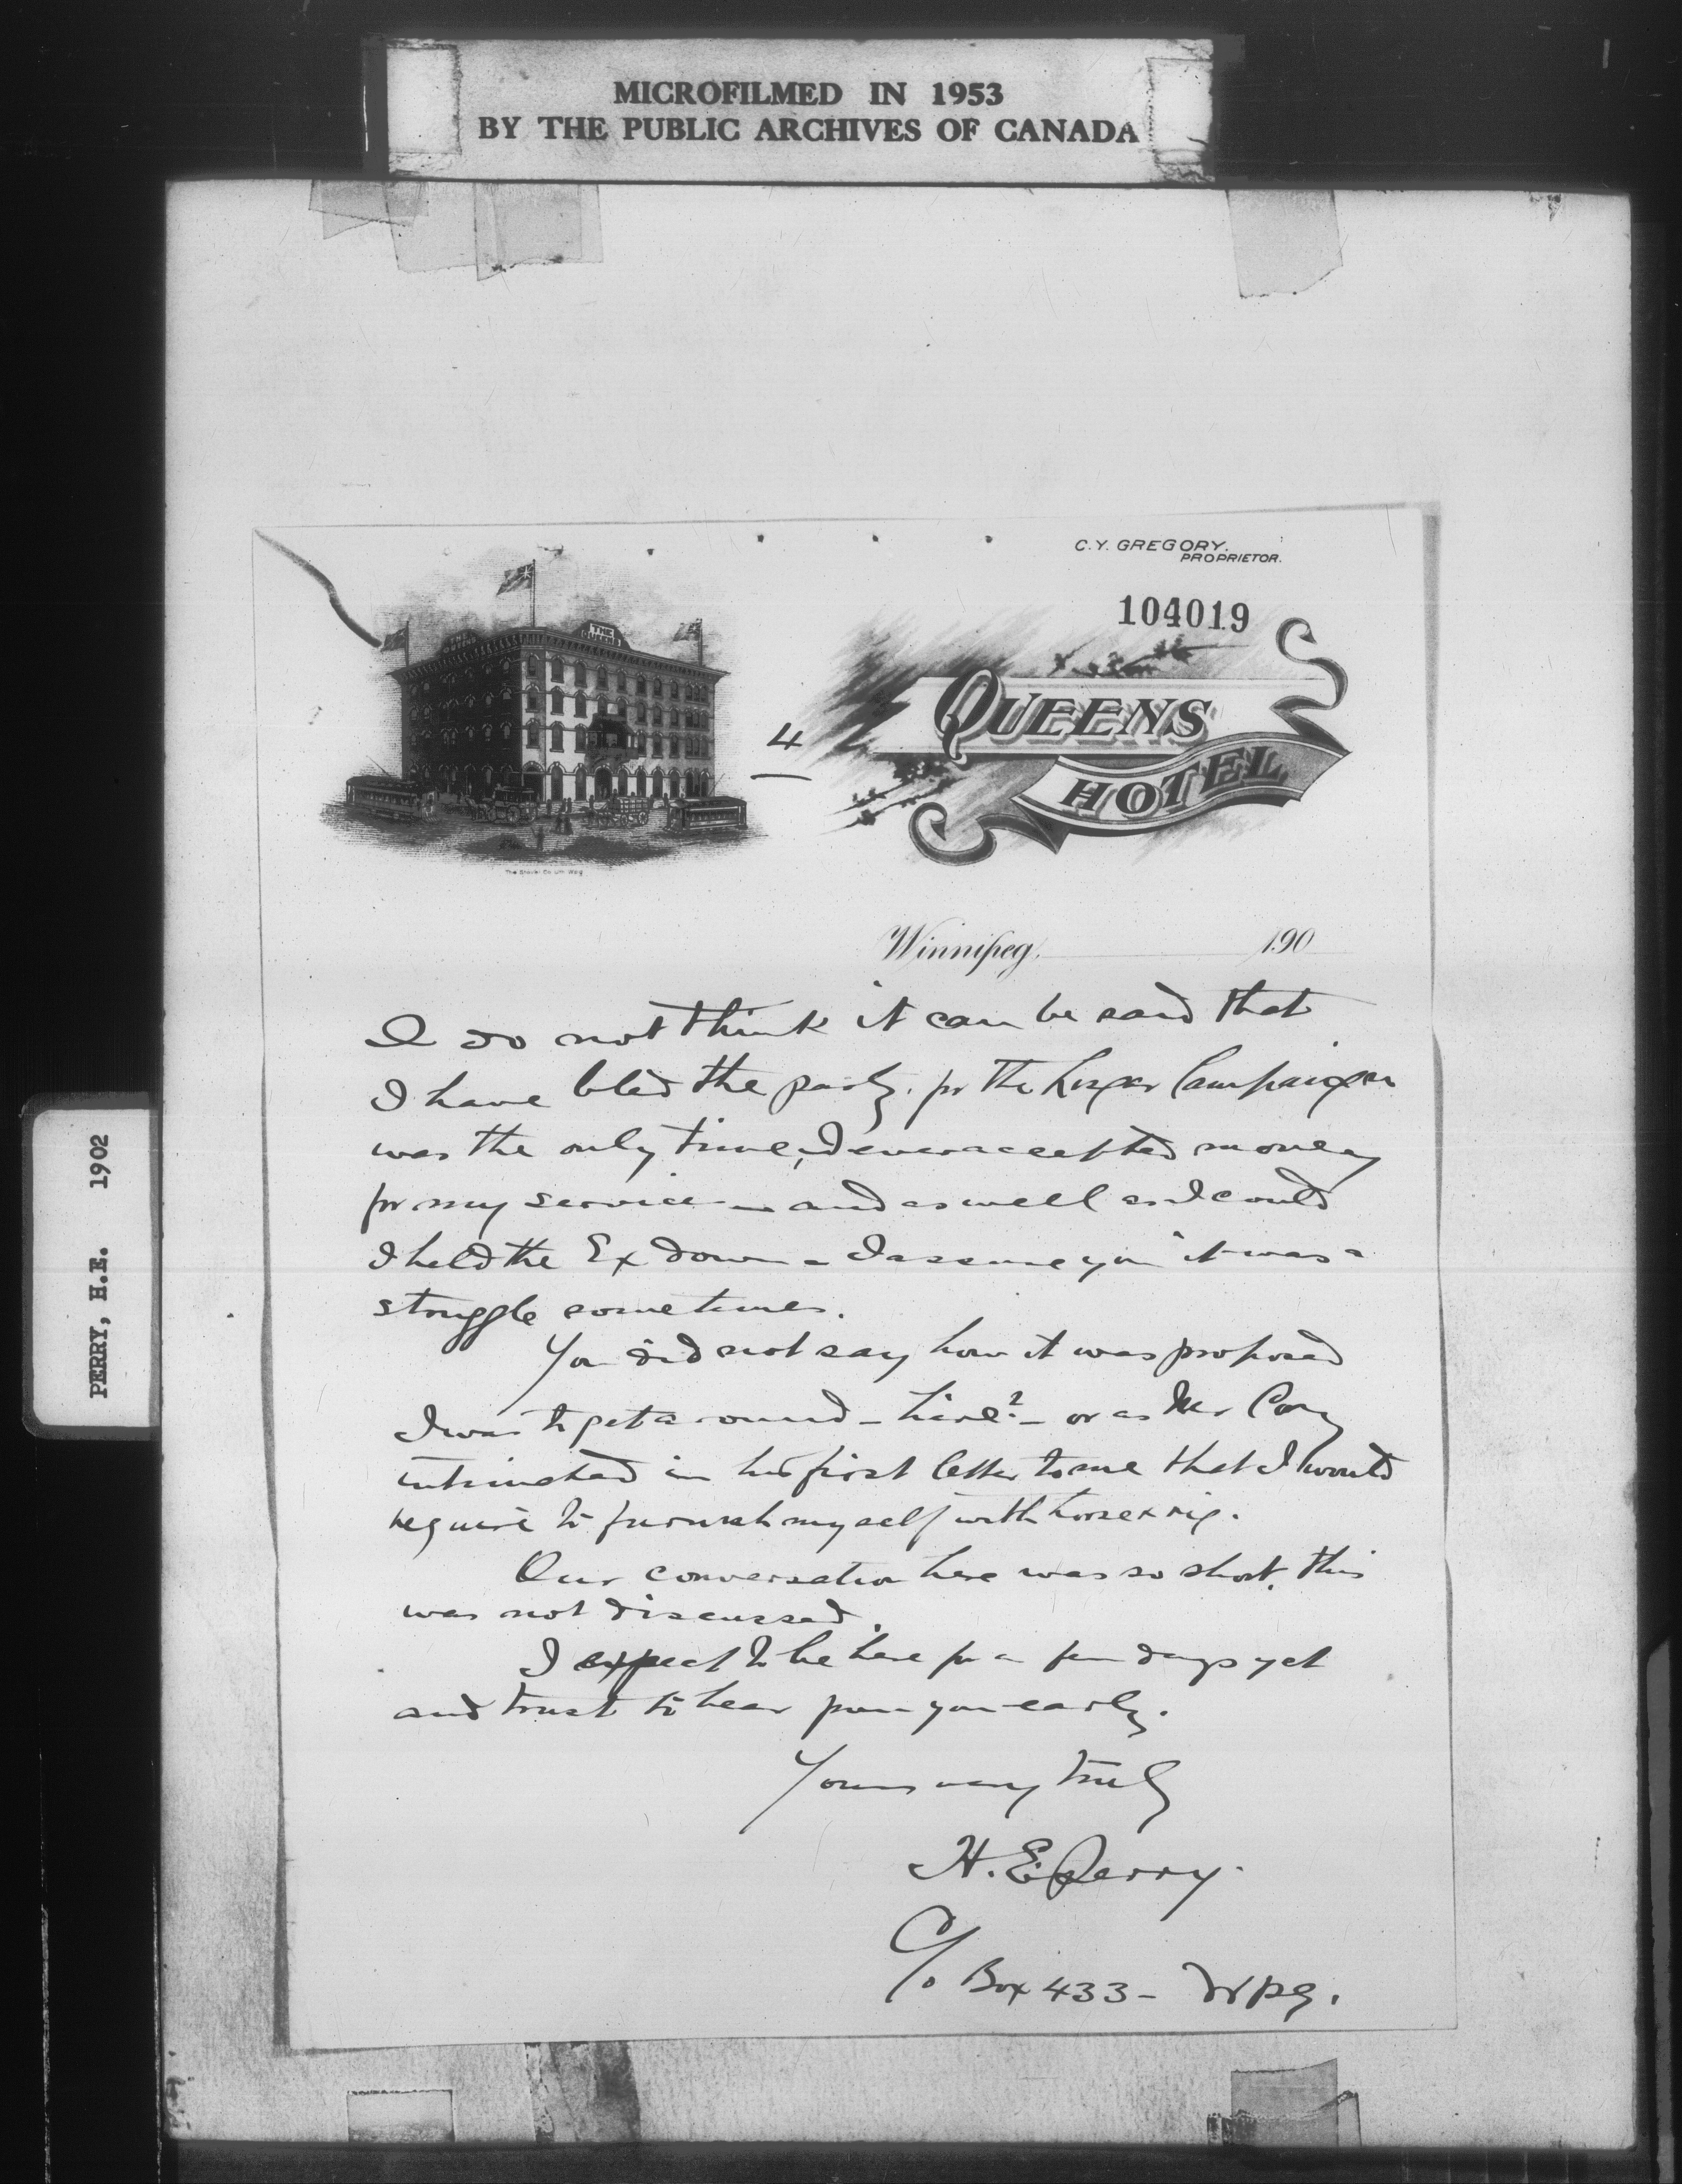 MICROFILMED IN 1953
BY THE PUBLIC ARCHIVES OF CANADA
PERRY, H.E. 1902
C.Y. GREGORY.
PROPRIETOR.
104019
THE QUEENS
4
QUEENS
HOTEL
Winnipeg, 190
I do not think it can be said that
I have bled the party. for the
was the only time, I ever accepted money
for my services and as well as I could
I held the Ex down - I assure you it was a
struggle sometimes.
You did not say how it was proposed
I was to get around - hire? - or as Mr Cory
intimated in his first letter to me that I would
require to furnish myself with horse & rig.
Our conversation here was so short, this
was not discussed.
I expect to be here for a few days yet
and trust to hear from you early.
Yours very truly
H. E. Perry.
C/o Box 433 - Wpg.